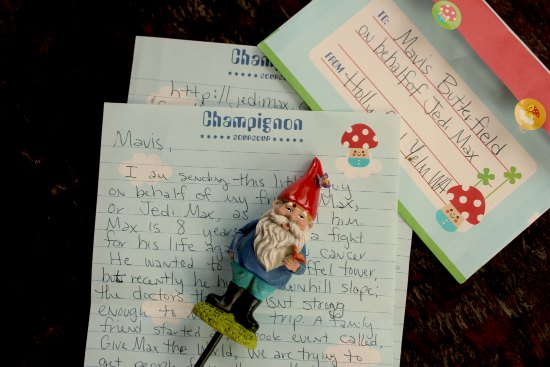 Champignon
http://jedimax.
TO:
Mavis Butterfield
on behalf of Jedi Max
FROM:
Holly
Yelm WA
Champignon
Mavis,
I am sending this little guy
on behalf of my Max,
or Jedi Max, as him.
Max is 8 years a fight
for his life cancer
He wanted to Eiffel tower,
but recently he downhill slope;
the doctors isnt strong
enough to trip. A family
friend started book event called,
Give Max the World, we are trying to
get people